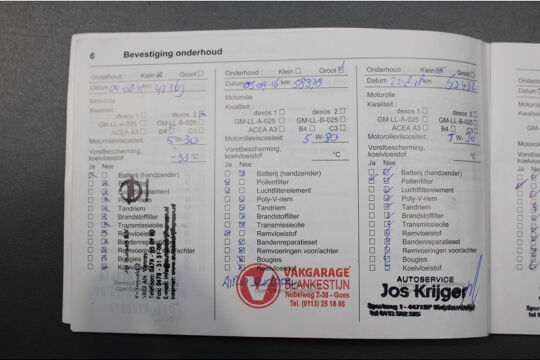 6 Bevestiging onderhoud
Onderhoud : Klein Groot
Datum km
Motorolie
Kwaliteit :
dexos 1 dexos 2
GM-LL-A-025 GM-LL-B-025
ACEA A3 B4 C3
Motorolieviscositeit: 5 W-30
Vorstbescherming,
koelvloeistof -33 °C
Ja Nee
Batterij (handzender)
Tandriem
Brandstoffilter
Transmissieolie
Remvloeistof
Bandenreparatieset
Remvoeringen voor/achter
Bougies
Koelvloeistof
Onderhoud : Klein Groot
Datum 05-09-16 km 58398
Motorolie
Kwaliteit :
dexos 1 dexos 2
GM-LL-A-025 GM-LL-B-025
ACEA A3 B4 C3
Motorolieviscositeit: 5 W-30
Vorstbescherming,
koelvloeistof °C
Ja Nee
Batterij (handzender)
Pollenfilter
Luchtfilterelement
Poly-V-riem
Tandriem
Brandstoffilter
Transmissieolie
Remvloeistof
Bandenreparatieset
Remvoeringen voor/achter
Bougies
Koelvloeistof
VAKGARAGE
BLANKESTIJN
Nobelweg 2-38 - Goes
Tel. (0113) 25 18 88
Onderhoud : Klein Groot
Datum km
Motorolie
Kwaliteit :
dexos 1 dexos 2
GM-LL-A-025 GM-LL-B-025
ACEA A3 B4 C3
Motorolieviscositeit: 5 W-30
Vorstbescherming,
koelvloeistof °C
Ja Nee
Batterij (handzender)
Pollenfilter
Luchtfilterelement
Poly-V-riem
Tandriem
Brandstoffilter
Transmissieolie
Remvloeistof
Bandenreparatieset
Remvoeringen voor/achter
Bougies
Koelvloeistof
AUTOSERVICE
Jos Krijger